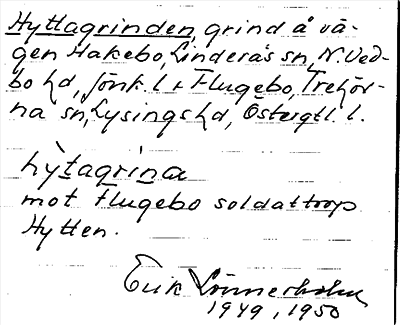 Hyttagrinden, grind å vä-
gen Hakebo, Linderås sn, N. Ved-
bo hd, Jönk. l & Flugebo, Trehör-
na sn, Lysings hd, Östergtl. l.
hỳtagrìna
mot Flugebo soldattorp
Hytten.
Erik Lönnerholm
1949, 1950